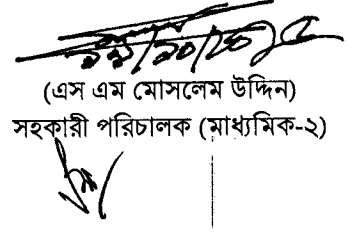 (এস এম মোসলেম উদ্দিন)
সহকারী পরিচালক (মাধ্যমিক-২)